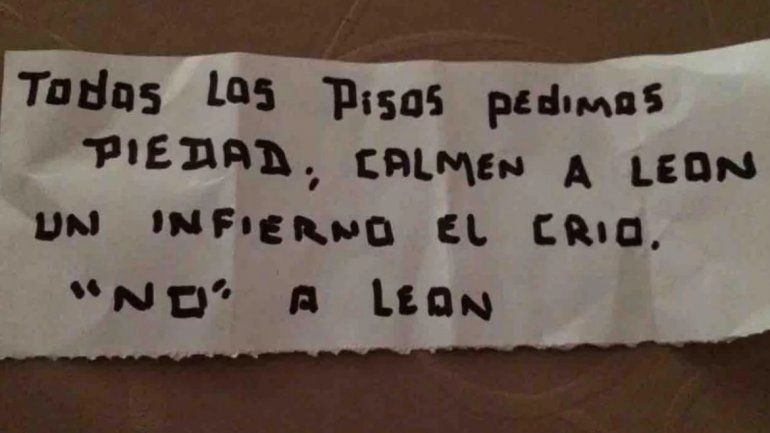 Todos los Pisos pedimos
PIEDAD, CALMEN A LEON
UN INFIERNO EL CRIO.
"NO" A LEON